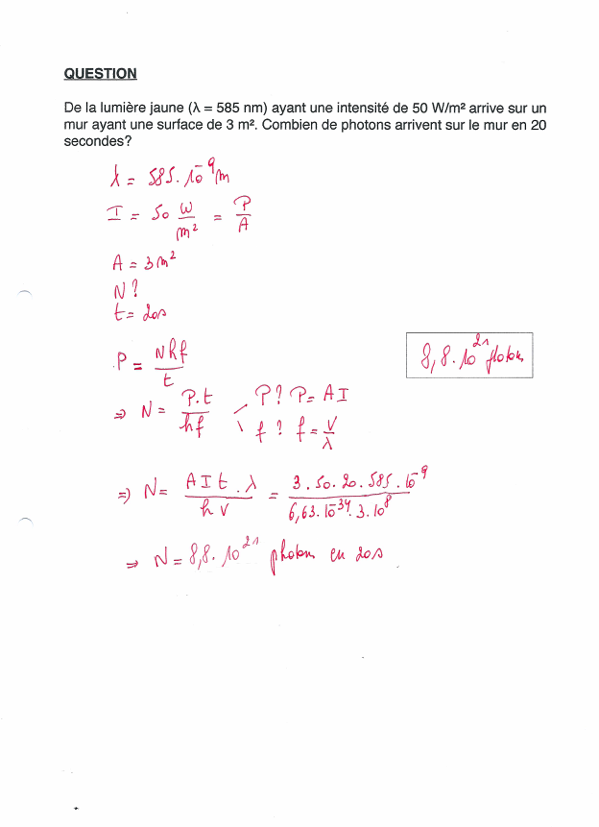 QUESTION
De la lumière jaune (λ = 585 nm) ayant une intensité de 50 W/m² arrive sur un
mur ayant une surface de 3 m². Combien de photons arrivent sur le mur en 20
secondes?
λ = 585. 10⁻⁹ m
I = 50 W/m² = P/A
A = 3 m²
N ?
t = 20s
P = Nhf/t
8,8. 10²¹ photons
⇒ N = P.t/hf P? P = AI
f ? f = v/λ
⇒ N = AIt.λ/hv = 3.50.20.585.10⁻⁹/6,63.10⁻³⁴.3.10⁸
⇒ N = 8,8. 10²¹ photons en 20s